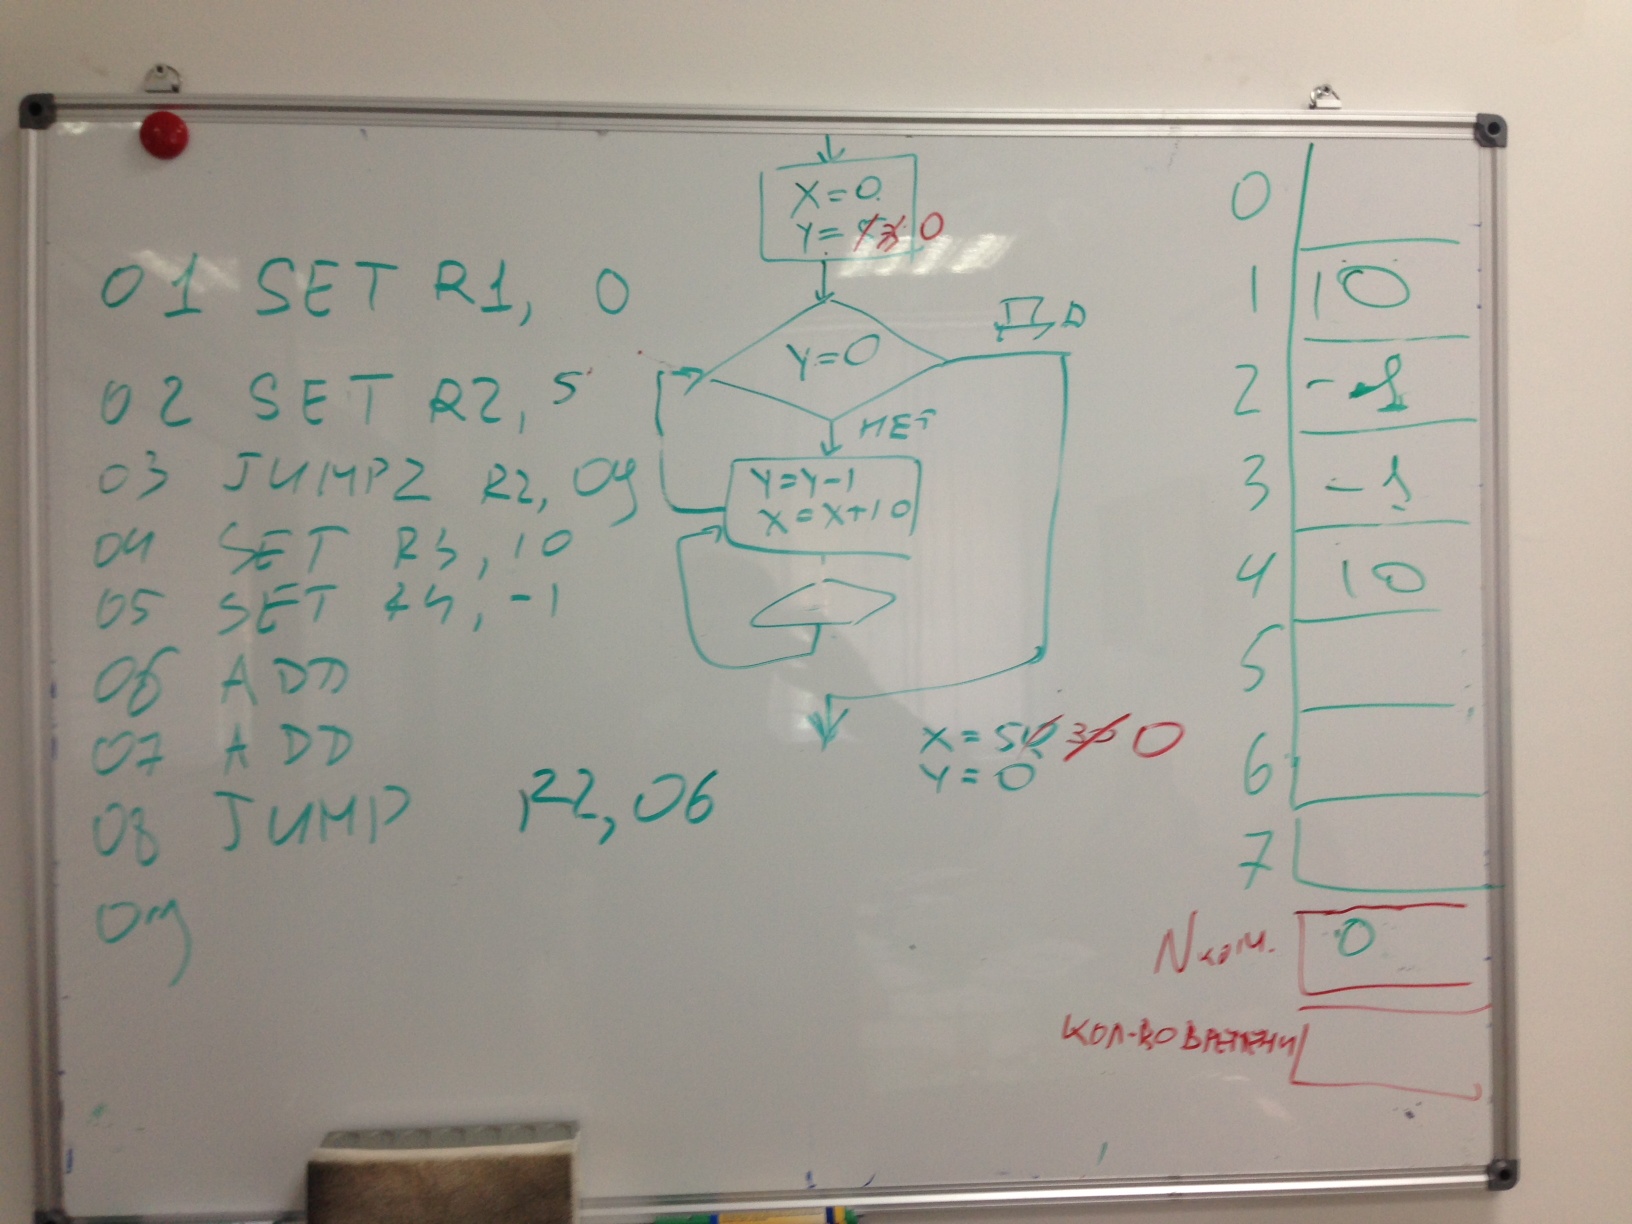 01 SET R1, 0
02 SET R2, 5
03 JUMPZ R2, 09
04 SET R3, 10
05 SET R4, -1
06 ADD
07 ADD
08 JUMP R2, 06
09
X=0
Y= 0
Y=0
НЕТ
Y=Y-1
X=X+10
X=50 30 0
Y=0
0
1 10
2 -1
3 -1
4 10
5
6
7
Nком. 0
КОЛ-ВО ВРЕМЕНИ